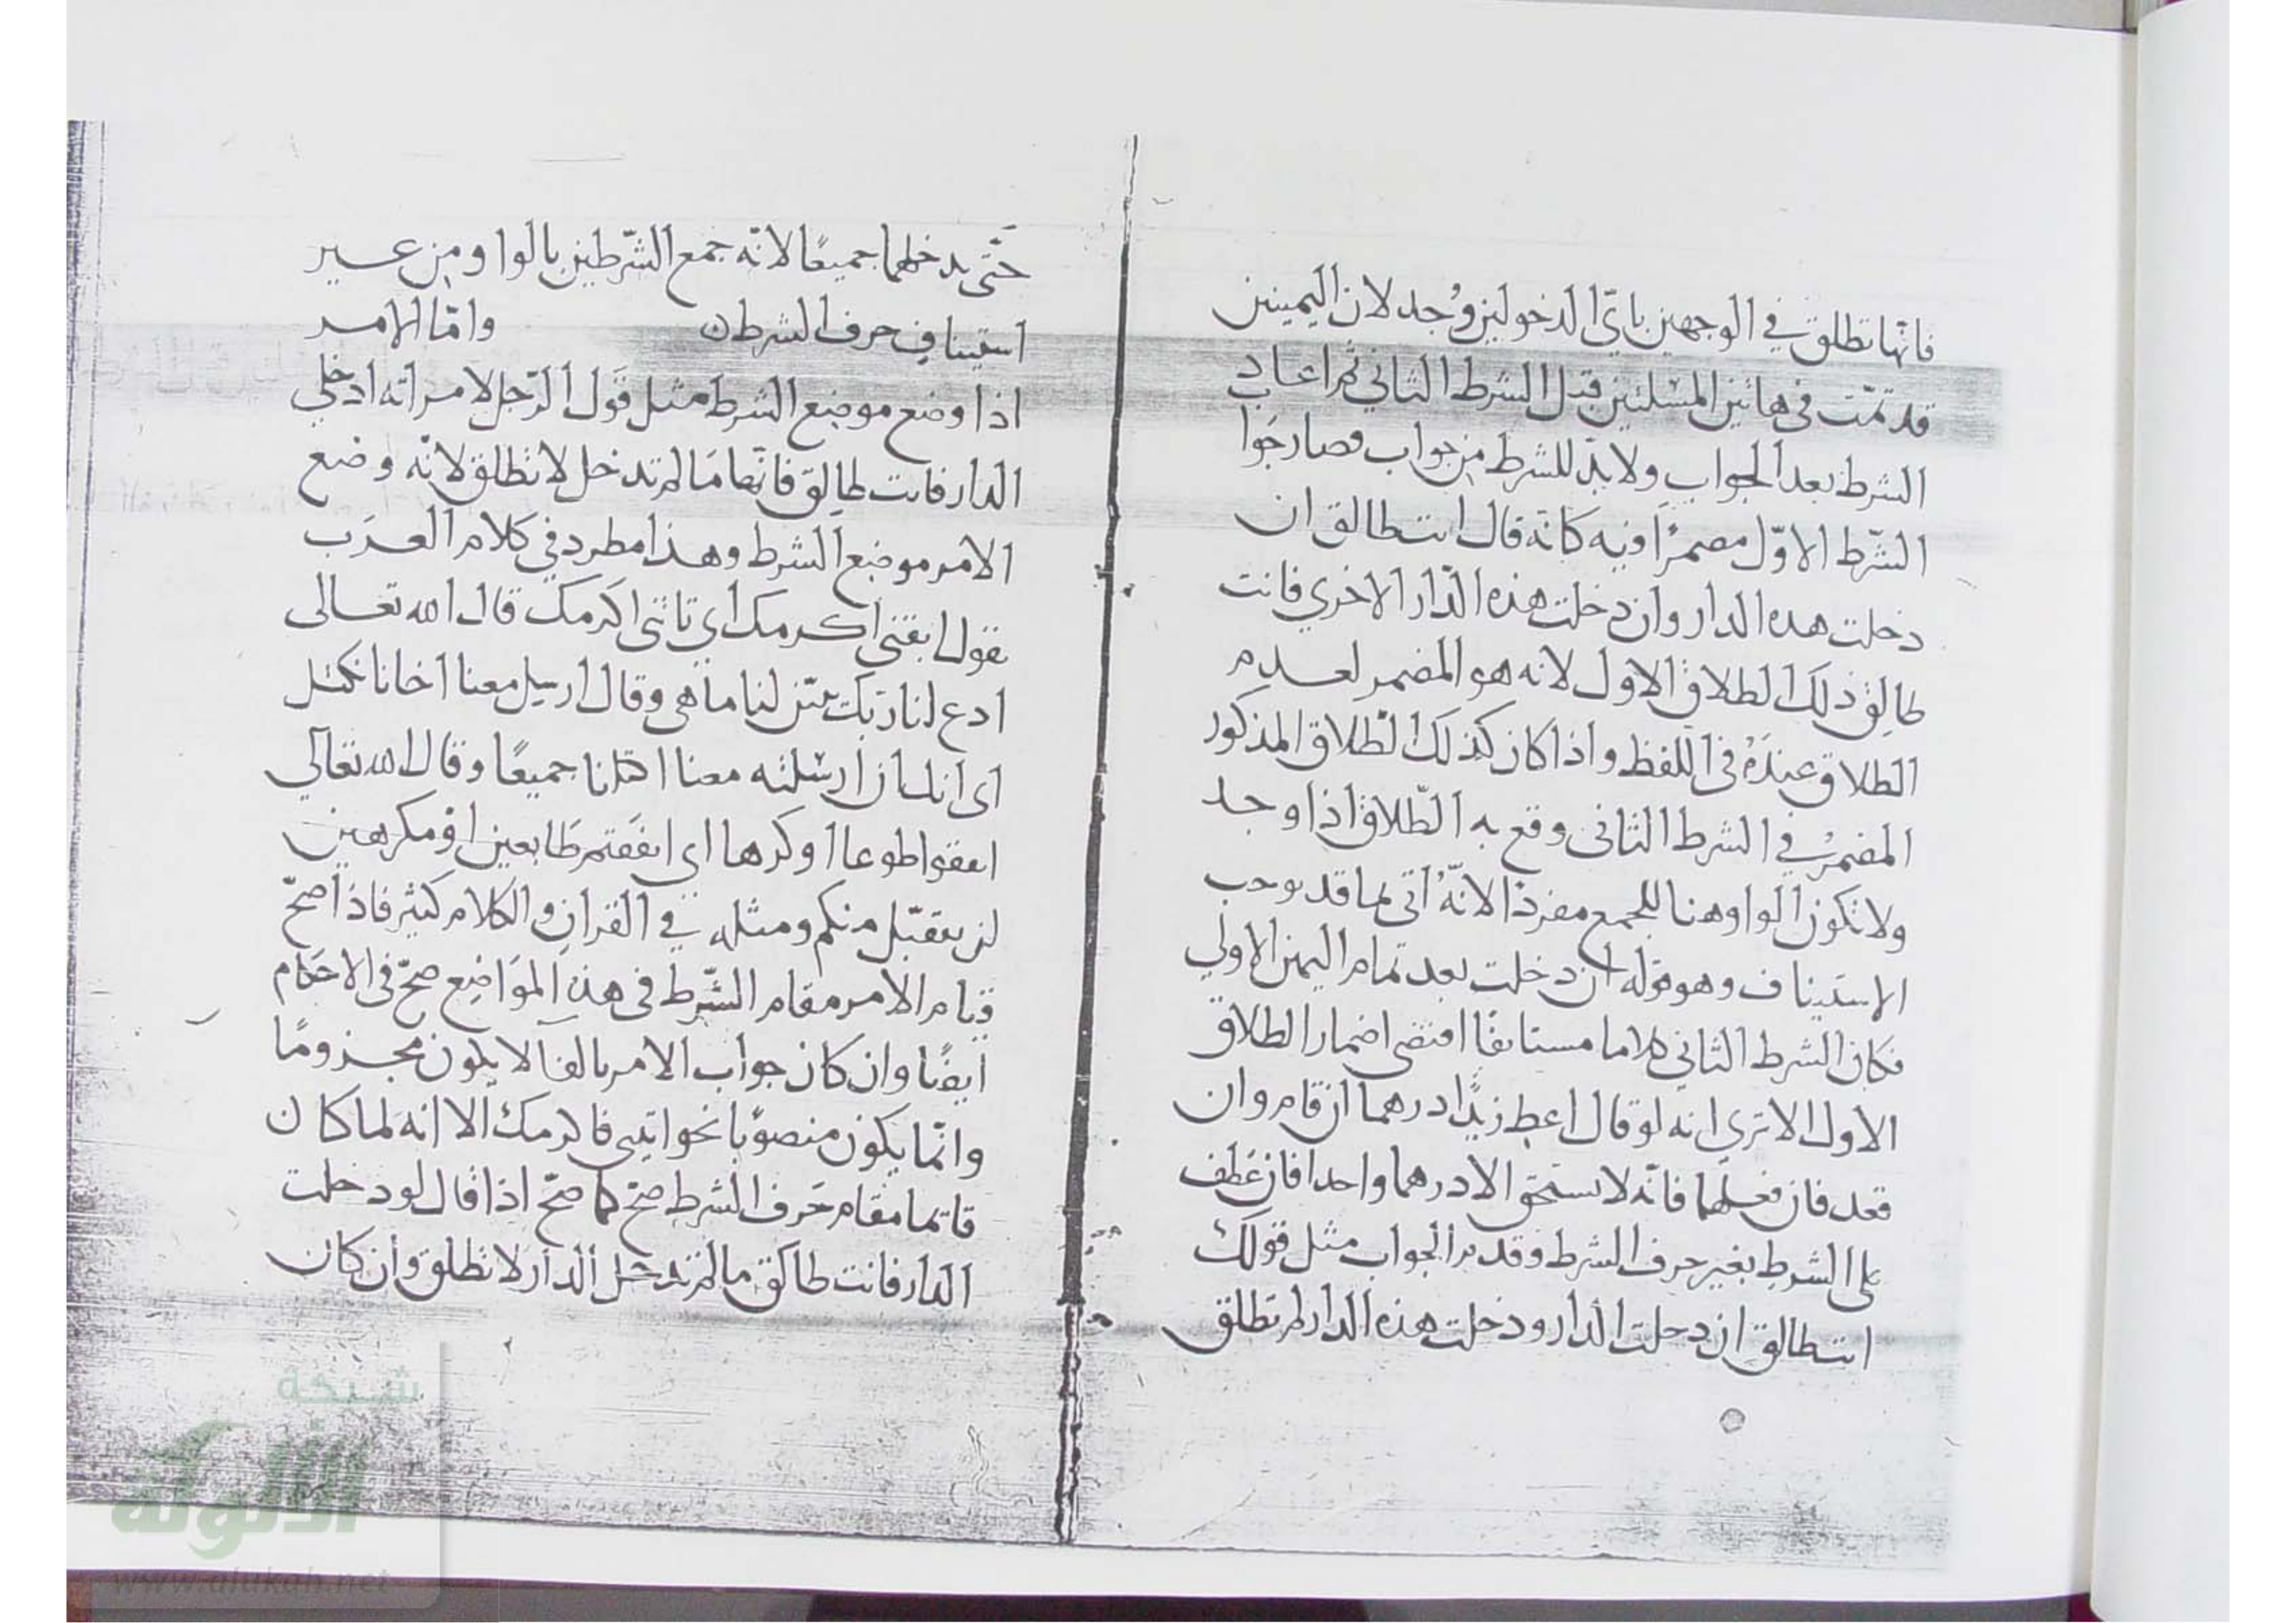 فانها تطلق في الوجهين بايّ الدخولين وُجد لان اليمينين
قد تمّت في هاتين المسئلتين قبل الشرط الثاني ثم اعاد
الشرط بعد الجواب ولا بدّ للشرط من جواب فصار جوا
الشّرط الاوّل مضمرًا فيه كانه قال انت طالق ان
دخلت هذه الدار وان دخلت هذه الدّار الاخري فانت
طالق ذلك الطلاق الاول لانه هو المضمر لعدم
الطلاق عنده في اللفظ واذا كان كذلك الطّلاق المذكور
المضمر في الشرط الثاني وقع به الطّلاق اذا وجد
ولا تكون الواو هنا للجمع مفردًا لانّه اتى بما قد يوجب
الاستيناف وهو قوله ان دخلت بعد تمام اليمين الاولي
فكان الشرط الثاني كلاما مستانفًا اقتضى اضمار الطلاق
الاول الا تري انه لو قال اعط زيدًا درهما ان قام وان
قعد فان فعلهما فانّه لا يستحق الا درهما واحدا فان عطف
على الشرط بغير حرف الشرط وقدم الجواب مثل قولك
انت طالق ان دخلت الدار ودخلت هذه الدار لم تطلق
حَتّى يدخلهما جميعًا لانّه جمع الشّرطين بالواو من غير
استيناف حرف الشرط وامّا الامر
اذا وضع موضع الشرط مثل قول الرّجل لامراته ادخلي
الدار فانت طالق فانّها مَا لم تدخل لا تطلق لانّه وضع
الامر موضع الشرط وهذا مطرد في كلام العرَب
يقول ايتني اكرمك اي تاتني اكرمك قال الله تعالى
ادع لنا ربّك يبيّن لنا ما هي وقال ارسل معنا اخانا نكتل
اى انك ان ارسلته معنا اكتلنا جميعًا وقال الله تعالي
انفقوا طوعا او كرها اي انفقتم طَايعين او مكرهين
لن يتقبّل منكم ومثله في القران والكلام كثير فاذا صحّ
قيام الامر مقام الشّرط في هذه المَوَاضِع صحّ في الاحكام
ايضًا وان كان جواب الامر بالفا لا يكون مجزومًا
وانّما يكون منصوبًا نحو ايتني فاكرمك الا انه لما كان
قائما مقام حَرف الشرط صحّ كما صحّ اذا قال لو دخلت
الدار فانت طالق ما لم تدخل الدار لا تطلق وان كان
شبكة
الألوكة
www.alukah.net